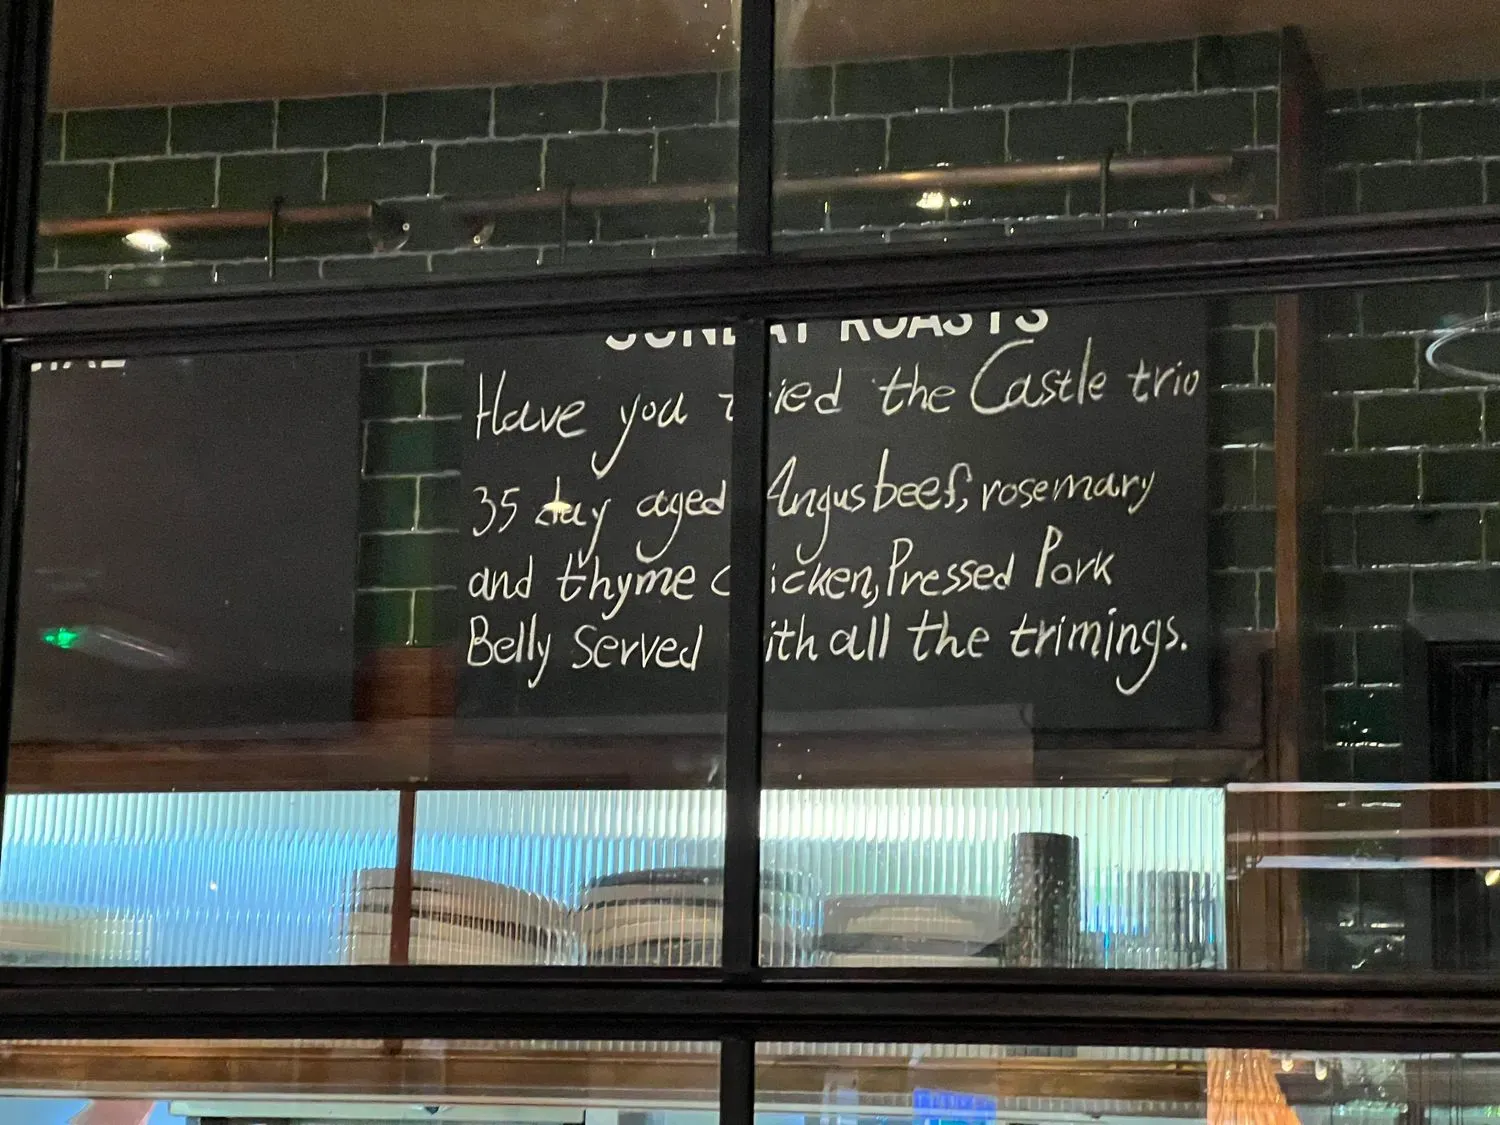 SUNDAY ROASTS
Have you tried the Castle trio
35 day aged Angus beef, rosemary
and thyme chicken, Pressed Pork
Belly Served with all the trimings.